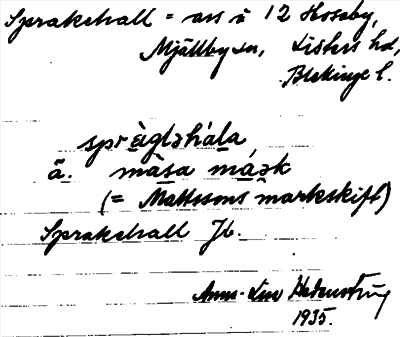 Sprakehall = ars i 12 Hosaby,
Mjällby sn, Listers hd,
Blekinge l.
spràgləhála
ä. màsa màək
(= Mattssons markskift)
Sprakehall Jb.
Anna-Lisa
1935.